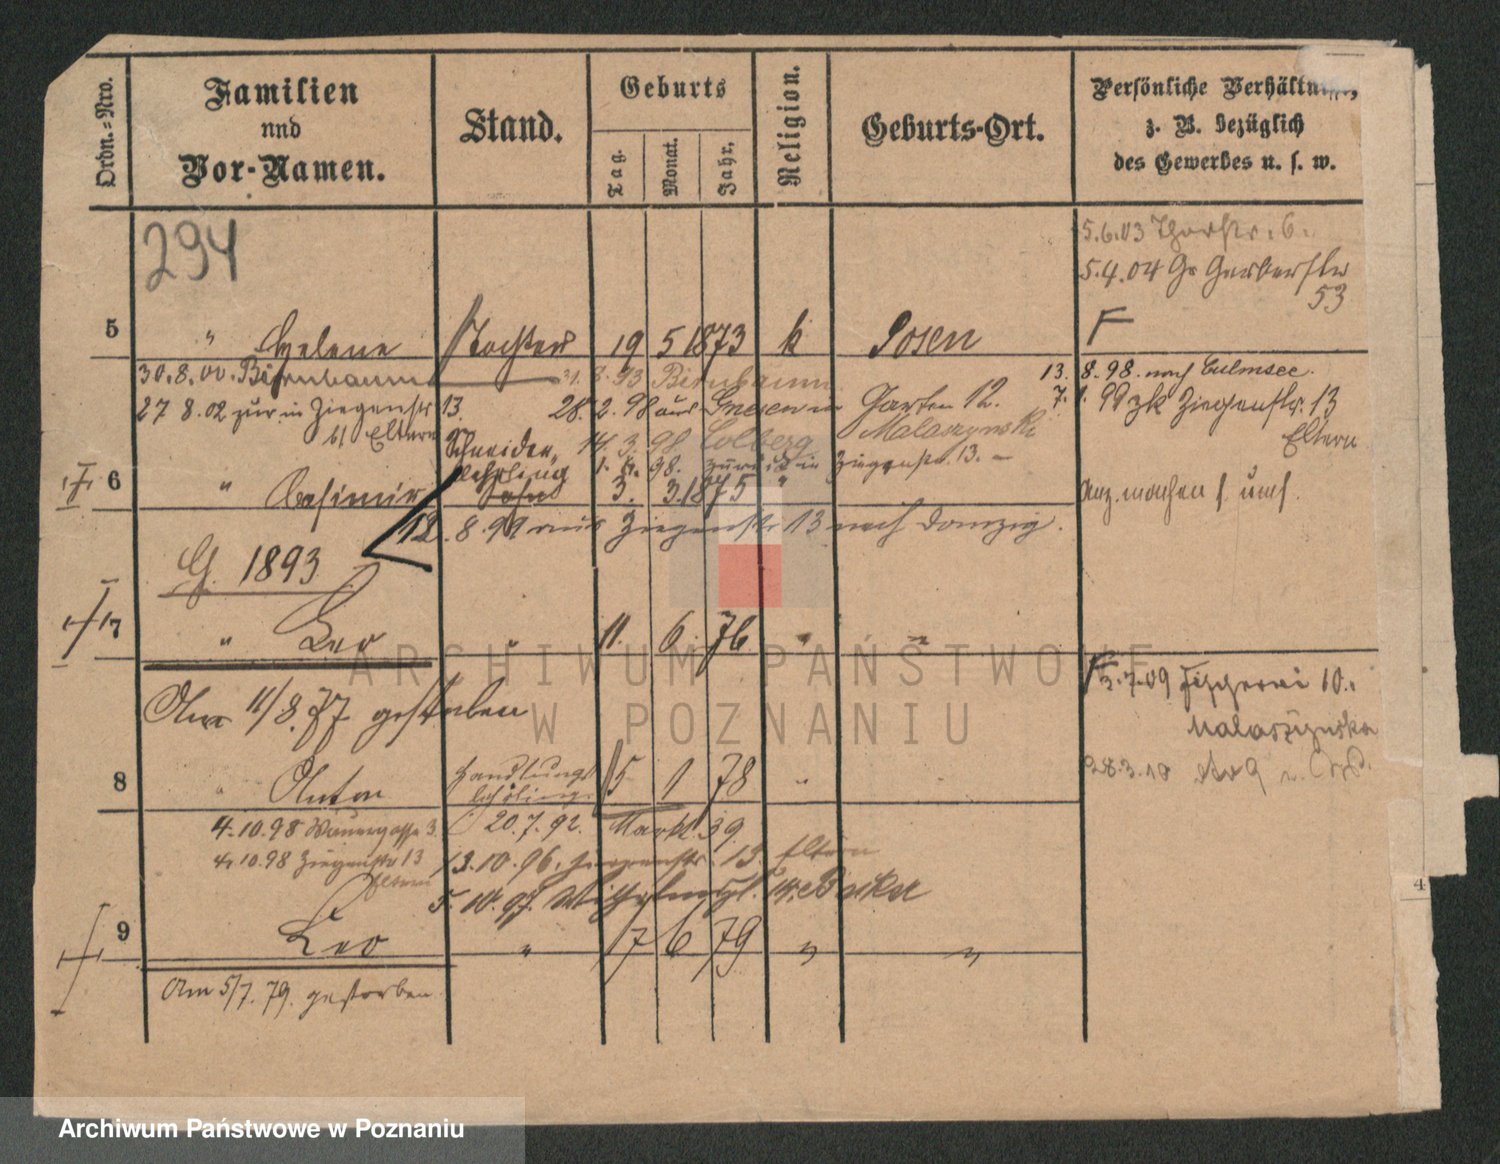 Ordn.=Nro.
Familien
und
Vor-Namen.
Stand.
Geburts
Tag.
Monat.
Jahr.
Religion.
Geburts-Ort.
Persönliche Verhältnisse,
z. B. bezüglich
des Gewerbes u. s. w.
294
5.6.03 Thorstr. 6.
5.4.04 Gr Gerberstr
53
5 " Helene Tochter 19 5 1873 k Posen
30.8.00. Birnbaum 31. 8. 93 Birnbaum 13. 8. 98. nach Culmsee.
27 8.02 zur in Ziegenstr 13. 28. 2. 98 aus Gnesen in Garten 12. 7. 1. 99 zk Ziegenstr. 13
bl Eltern 14. 3. 98 Colberg Malaszynski Eltern
Schneider
lehrling 1. 4. 98. zurück in Ziegenstr. 13. –
6 " Casimir Sohn 3. 3. 1875 "
12. 8. 99 aus Ziegenstr 13 nach Danzig.
G. 1893
7 " Leo " 11. 6. 76 " "
Am 11/8. 77 gestorben
F 3.7.09 Fischerei 10.
Malaszynska
28.3.10
8 " Anton Handlungs
lehrling 15 1 78 "
4.10.98 Mauergasse 3. 20.7.92. Markt 39.
4.10.98 Ziegenstr 13 13.10.96. Ziegenstr. 13 Eltern
Eltern 5.10.97. Wilhelmspl. 14.
9 Leo " 7 6 79 " "
Am 5/7. 79. gestorben
4
ARCHIWUM PAŃSTWOWE
W POZNANIU
Archiwum Państwowe w Poznaniu